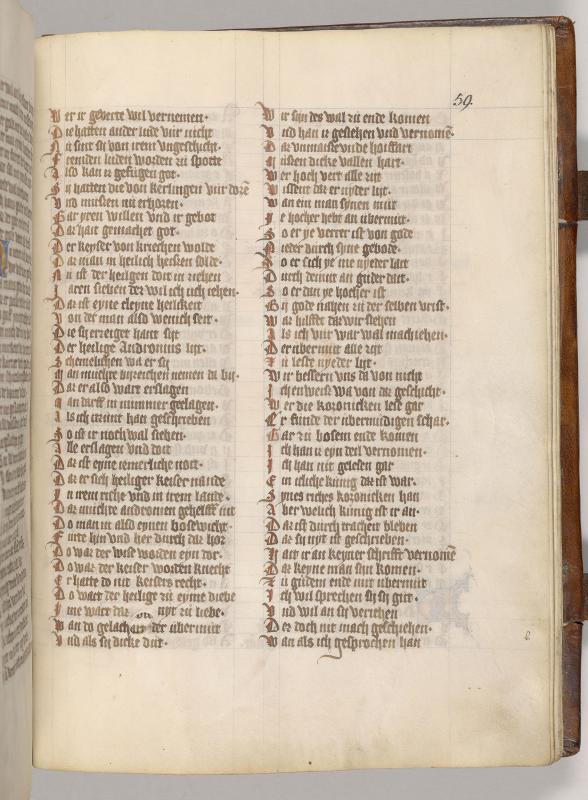 59.
Wer ir geverte wil vernemen.
Die hatten ander lude vur nicht
Nu sint sy von irem ungeschicht.
Fremden luden worden zu spotte
Also kan iz gefugen got.
Sy hatten die von kerlingen vur dorē
Und musten nu erhoren.
Gar yren willen und ir gebot
Daz hait gemachet got.
Der keyser von kriechen wolde
Daz man in heilich heissen solde.
Nu ist der heilgen dort in ziehen
Iaren sieben der wil ich uch iehen.
Daz ist eyne cleyne heilikeit
Von der man also wenich seit.
Die sy erzeiget hant sijt
Der heilige Andronius lijt.
Schemelichen wa er sy
Man muchte byzeichen nemen da by.
Daz er also wart erslagen
Man darff in nummer geclagen.
Als ich vornt han geschrieben
So ist ir noch wal sieben.
Alle erslagen und doit
Daz ist eyne iemerliche noit.
Daz er sich heiliger keiser nande
In irem riche und in irem lande.
Daz muchte andronien gehelffē nit
Do man in also eynen bosewicht.
Furte hin und her durch daz hor
Do waz der wise worden eyn dor.
Do waz der keiser worden knecht
Er hatte do nit keisers recht.
Do wart der heilige zu eyme diebe
Ime wart daz nyt zu liebe.
Wan do gelachen der ubermut
Und als sy dicke dut.
Wir syn des wal zu ende komen
Und han iz gesiehen und vernomē.
Daz unmaissende hoiffart
Muisen dicke vallen hart.
Wer hoch vert alle zijt
Wissent daz er nyder lijt.
Wan ein man synen mut
Ie hocher hebt an ubermut.
So er ye verrer ist von gode
Nieder durch syme gebode
So er sich ye me nyeder lait
Durch demut an guder dait.
So er dan ye hocher ist
By gode nahen zu der selben vrist.
Waz hilffet daz wir siehen
Als ich vur war wal mach iehen.
Der ubermut alle zijt
Zu leste nyeder lijt.
Wir bessern uns da von nicht
Ichen weis wa von daz geschicht.
Wer die kozonicken lese gar
Er funde der ubermudigen schar.
Gar zu bosem ende komen
Ich han iz eyn deil vernomen.
Ich han nit gelesen gar
Ein iclliche konig daz ist war.
Synes riches kozonicken han
Aber welich kunig ist ir an.
Daz ist durch trachen bleben
Daz sy nyt ist geschrieben.
Hait ir an keyner schrifft vernomē
Daz keyne man sijn komen.
Zu gudem ende mit ubermut
Ich wil sprechen sy sy gut.
Und wil an sy veriehen
Der doch nit mach geschiehen.
Wan als ich gesprochen han